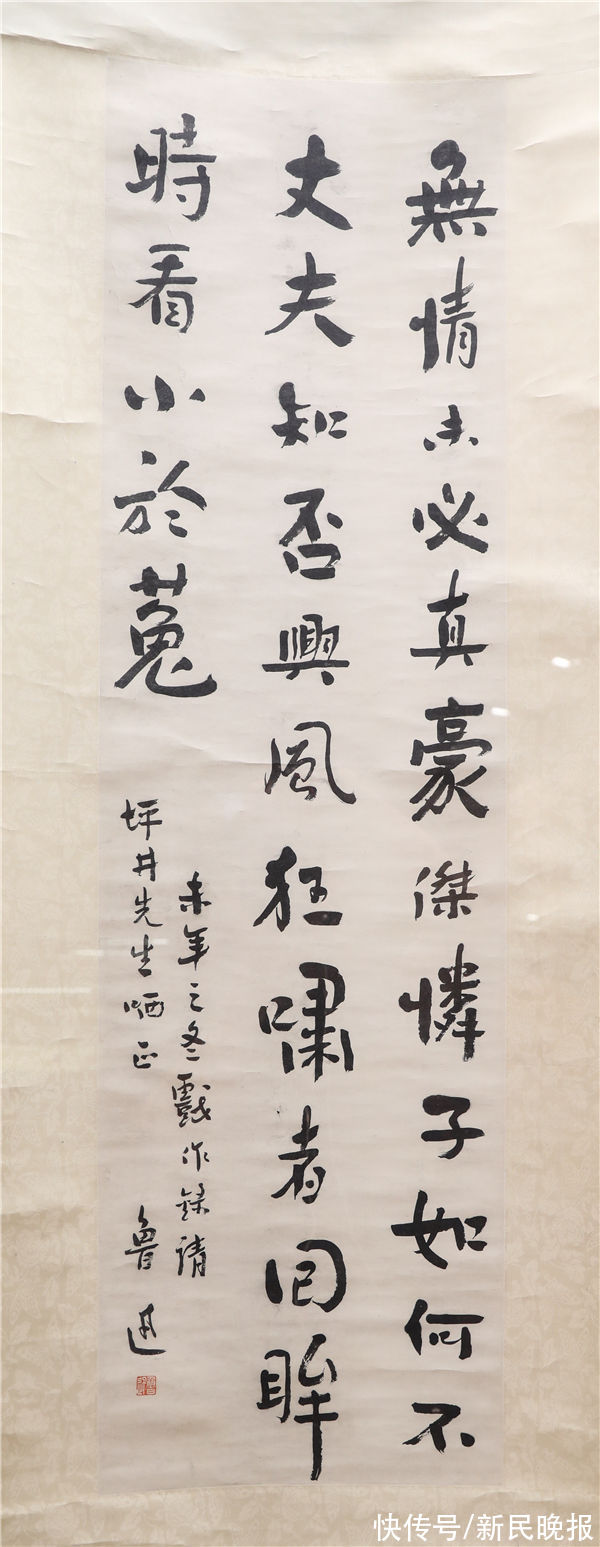 無情未必真豪傑憐子如何不
丈夫知否興風狂嘯者回眸
時看小於菟
未年之冬戲作錄請
坪井先生哂正
魯迅
快传号/新民晚报